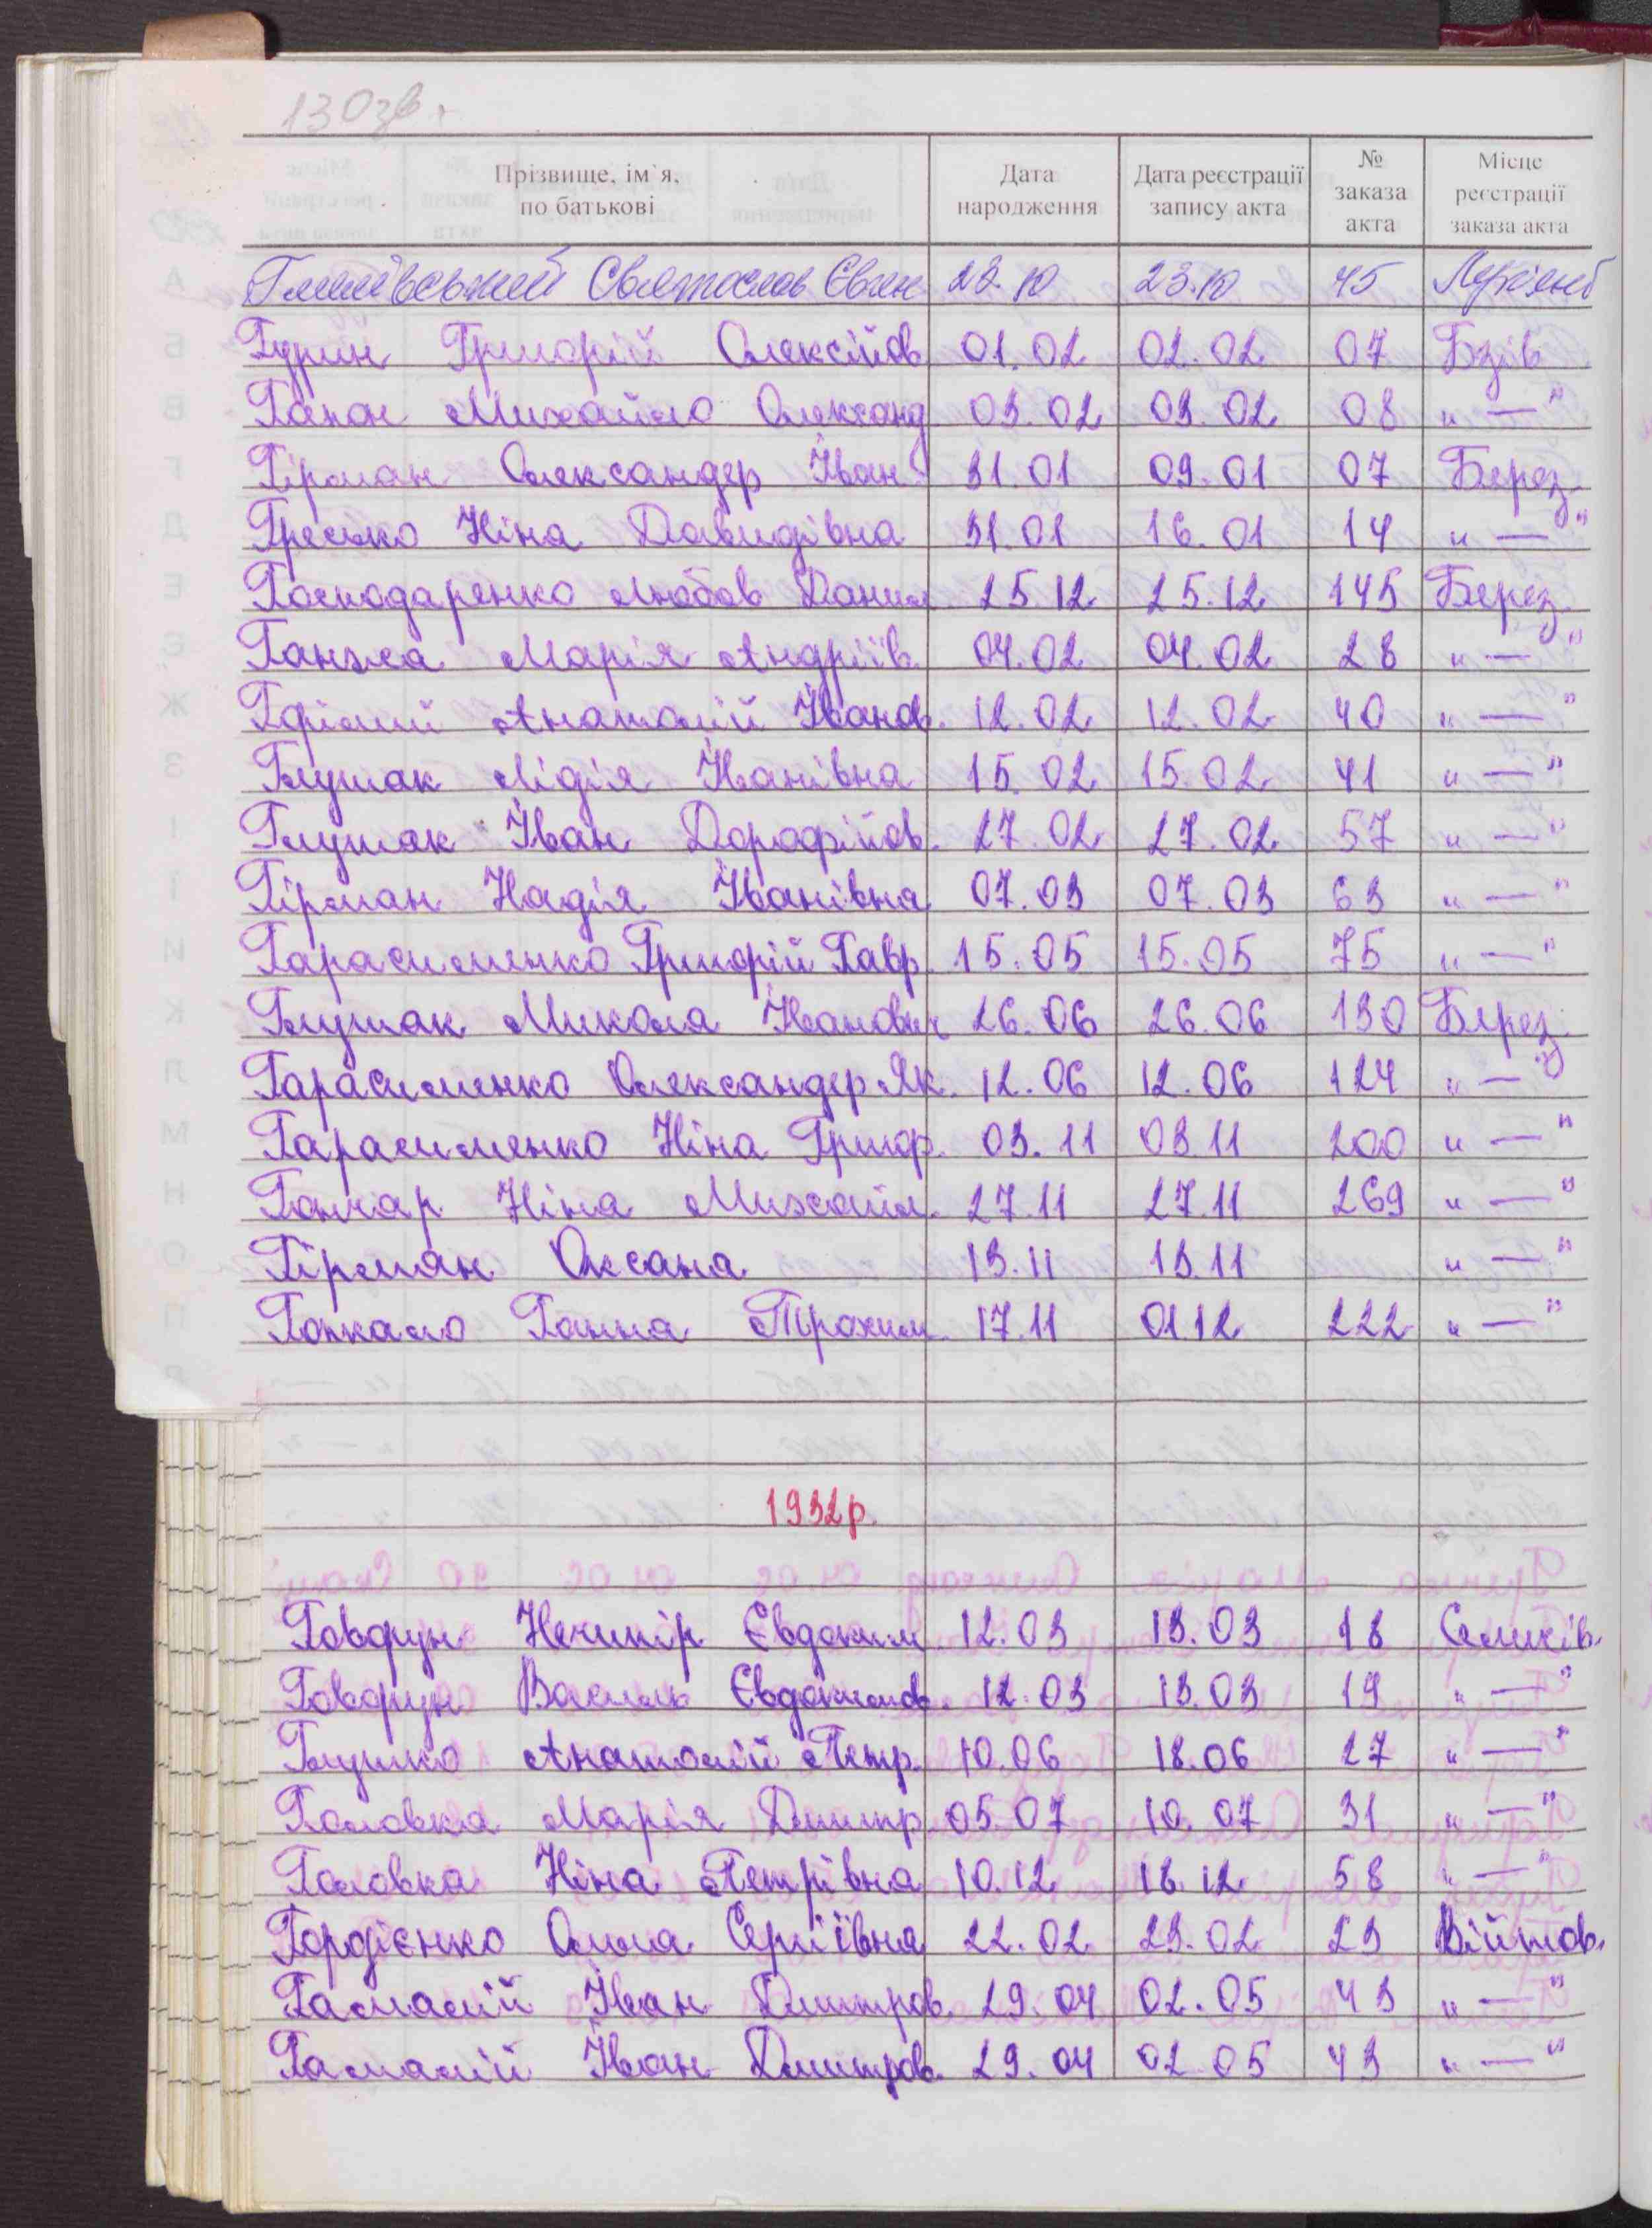 130зв.
Прізвище, ім`я, по батькові Дата народження Дата реєстрації запису акта № заказа акта Місце реєстрації заказа акта
Святослав Євген 23.10 23.10 45
Гурин Григорій Олексійов 01.02 02.02 07 Бзів
Гапон Михайло Олександ 03.02 03.02 08 „ — "
Гірман Олександер Іван 31.01 09.01 07 Берез.
Гресько Ніна Давидівна 31.01 16.01 14 „ — "
Господаренко Любов Данил 25.12 25.12 145 Берез.
Ганжа Марія Андріїв 04.02 04.02 28 „ — "
Анатолій Іванов. 12.02 12.02 40 „ — "
Глушак Лідія Іванівна 15.02 15.02 41 „ — "
Глушак Іван Дорофійов. 27.02 27.02 57 „ — "
Гірман Надія Іванівна 07.03 07.03 63 „ — "
Гарасименко Григорій Гавр. 15.05 15.05 75 „ — "
Глушак Микола Іванович 26.06 26.06 130 Берез.
Гарасименко Олександер Як. 12.06 12.06 124 „ — "
Гарасименко Ніна Григор. 03.11 03.11 200 „ — "
Гончар Ніна Михайл. 27.11 27.11 269 „ — "
Гірман Оксана 13.11 13.11 „ — "
Гопкало Ганна Трохим 17.11 01.12 222 „ — "
1932р.
Говорун Нечипір Євдоким 12.03 13.03 18 Селичів.
Говорун Василь Євдокимов. 12.03 13.03 19 „ — "
Глушко Анатолій Петр. 10.06 18.06 27 „ — "
Головка Марія Дмитр 05.07 10.07 31 „ — "
Головка Ніна Петрівна 10.12 18.12 58 „ — "
Гордієнко Ольга Сергіївна 22.02 23.02 23 Війтов.
Гамалій Іван Дмитров. 29.04 02.05 43 „ — "
Гамалій Іван Дмитров. 29.04 02.05 43 „ — "